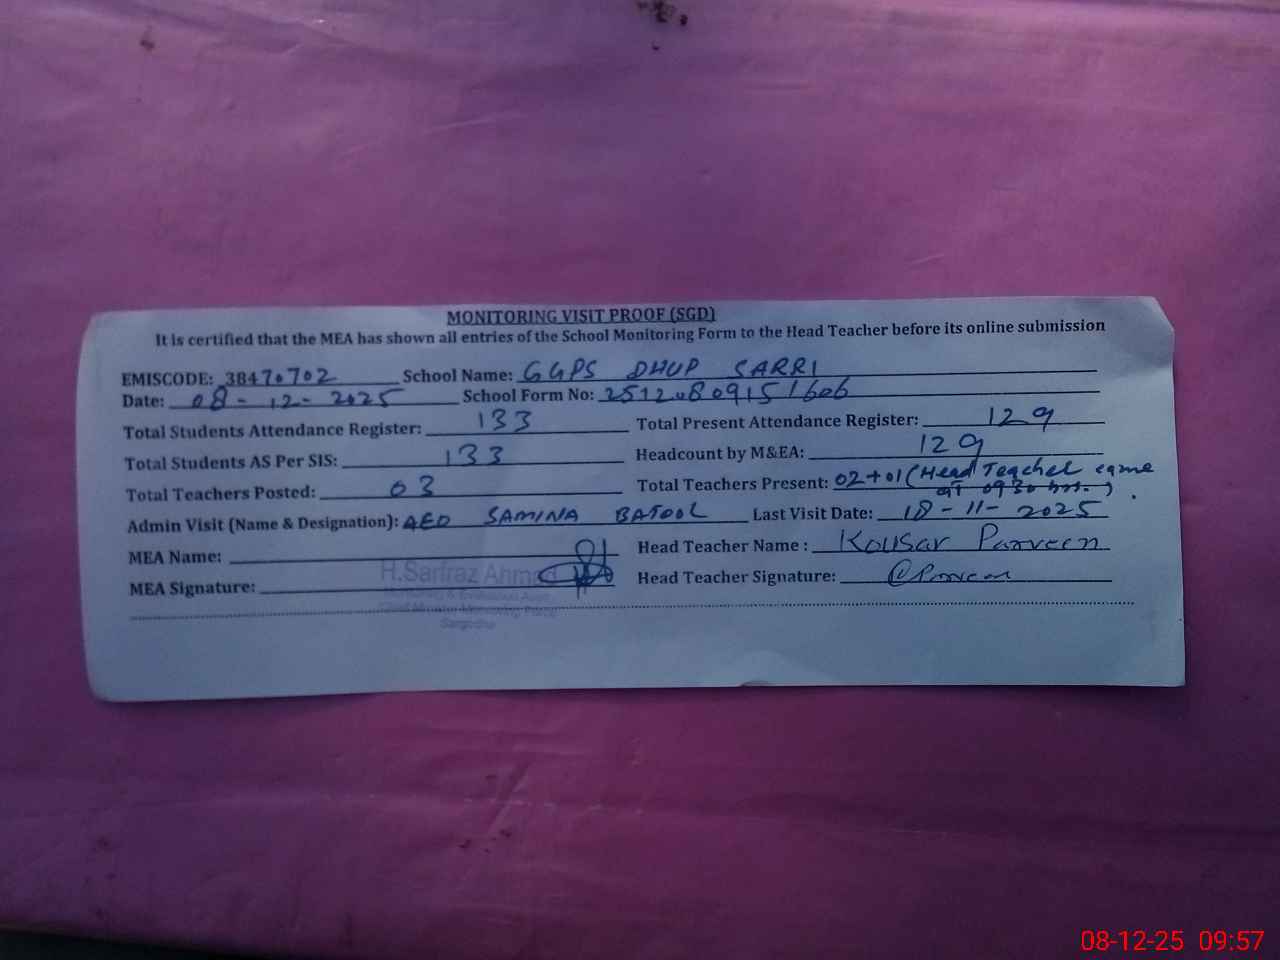 MONITORING VISIT PROOF (SGD)
It is certified that the MEA has shown all entries of the School Monitoring Form to the Head Teacher before its online submission
EMISCODE: 38470702 School Name: GGPS DHUP SARRI
Date: 08-12-2025 School Form No: 2512080915 1606
Total Students Attendance Register: 133 Total Present Attendance Register: 129
Total Students AS Per SIS: 133 Headcount by M&EA: 129
Total Teachers Posted: 03 Total Teachers Present: 02+01 (Head Teacher came
at 0930 hrs.)
Admin Visit (Name & Designation): AEO SAMINA BATOOL Last Visit Date: 18-11-2025
MEA Name: Head Teacher Name : Kousar Parveen
H.Sarfraz Ahmad
MEA Signature: Head Teacher Signature: Parveen
Monitoring & Evaluation Asstt.
Chief Minister Monitoring Force
Sargodha
08-12-25 09:57